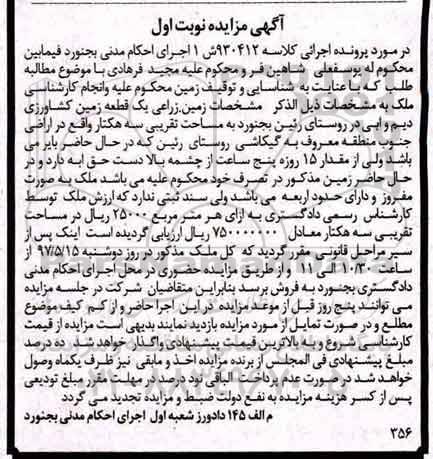 آگهی مزایده نوبت اول
در مورد پرونده اجرائی کلاسه ۹۳۰۴۱۲ش ۱ اجرای احکام مدنی بجنورد فیمابین
محکوم له یوسفعلی شاهین فر و محکوم علیه مجید فرهادی با موضوع مطالبه
طلب که با عنایت به شناسایی و توقیف زمین محکوم علیه وانجام کارشناسی
ملک به مشخصات ذیل الذکر مشخصات زمین.زراعی یک قطعه زمین کشاورزی
دیم و ابی در روستای رئین بجنورد به مساحت تقریبی سه هکتار واقع در اراضی
جنوب منطقه معروف به گیکاشی روستای رئین که در حال حاضر بایر می
باشد ولی از مقدار ۱۵ روزه پنج ساعت از چشمه بالا دست حق ابه دارد و در
حال حاضر زمین مذکور در تصرف خود محکوم علیه می باشد ملک به صورت
مفروز و دارای حدود اربعه می باشد ولی سند ثبتی ندارد که ارزش ملک توسط
کارشناس رسمی دادگستری به ازای هر متر مربع ۲۵۰۰۰ ریال در مساحت
تقریبی سه هکتار معادل ۷۵۰۰۰۰۰۰۰ ریال ارزیابی گردیده است اینک پس از
سیر مراحل قانونی مقرر گردید که کل ملک مذکور در روز دوشنبه ۹۷/۵/۱۵ از
ساعت ۱۰/۳۰ الی ۱۱ و از طریق مزایده حضوری در محل اجرای احکام مدنی
دادگستری بجنورد به فروش برسد بنابراین متقاضیان شرکت در جلسه مزایده
می توانند پنج روز قبل از موعد مزایده در این اجرا حاضر و از کم کیف موضوع
مطلع و در صورت تمایل از مورد مزایده بازدید نمایند بدیهی است مزایده از قیمت
کارشناسی شروع و به بالاترین قیمت پیشنهادی واگذار خواهد شد ده درصد
مبلغ پیشنهادی فی المجلس از برنده مزایده اخذ و مابقی نیز ظرف یکماه وصول
خواهد شد در صورت عدم پرداخت الباقی نود درصد در مهلت مقرر مبلغ تودیعی
پس از کسر هزینه مزایده به نفع دولت ضبط و مزایده تجدید می گردد
م الف ۱۴۵ دادورز شعبه اول اجرای احکام مدنی بجنورد
۳۵۶